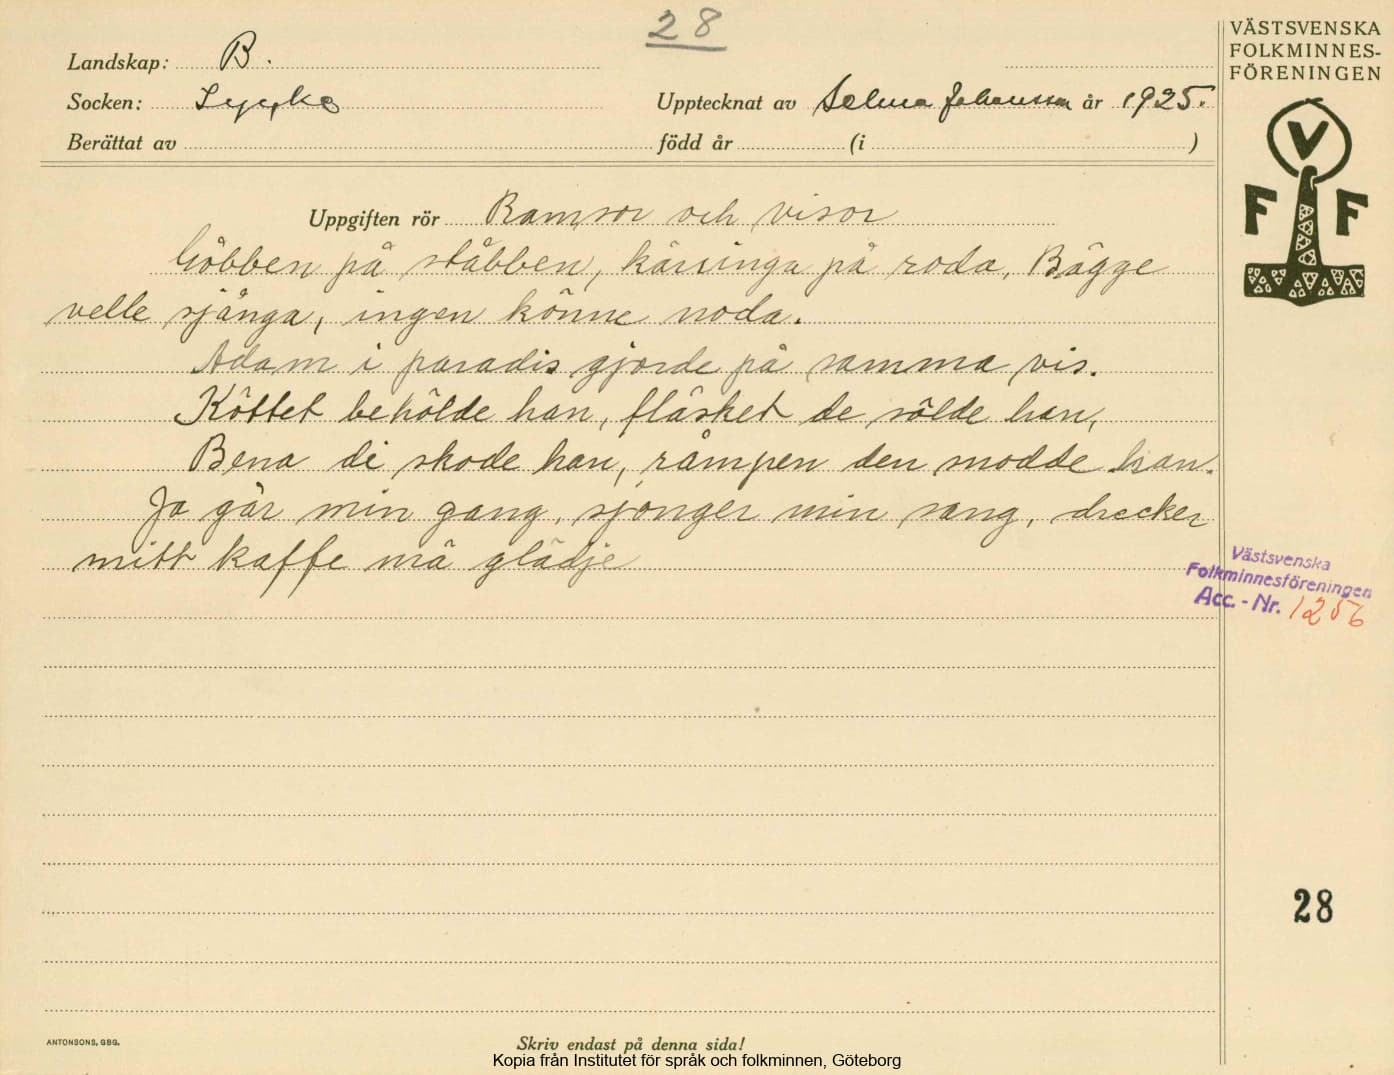 28
Landskap: B.
Socken: Lycke
Upptecknat av Selma Johansson år 1925.
Berättat av
född år (i )
Uppgiften rör Ramsor och visor
Göbben på stàbben, käringa på roda. Bägge
velle sjånga, ingen könne noda.
Adam i paradis gjorde på samma vis.
Köttet behölde han, fläsket de sålde han,
Bena di skode han, råmpen den snodde han.
Ja går min gang, sjonger min sang, drecker
mitt kaffe mä glädje
VÄSTSVENSKA
FOLKMINNES-
FÖRENINGEN
V
F F
Västsvenska
Folkminnesföreningen
Acc. - Nr. 1256
28
ANTONSONS, GBG.
Skriv endast på denna sida!
Kopia från Institutet för språk och folkminnen, Göteborg